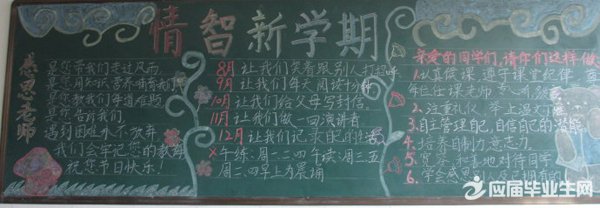 情智新学期
感恩老师
是您带我们走过风雨
是您用知识营养哺育我们
是您教我们得道做人
是您告诉我们
遇到困难外不放弃
我们会牢记您的教诲
祝您节日快乐!
8月 让我们笑着跟别人打招呼
9月 让我们每天阅读十分钟
10月 让我们给父母写封信
11月 让我们做一回演讲者
12月 让我们记录自己的生活
午练:周一二四 午读:周三五
周二四早上为晨诵
亲爱的同学们,请你们这样做
1.认真候课 遵守课堂纪律 尊
重任课老师
2.注重礼仪 学上温文
3.自主管理自己,自信自己的潜能
4.培养自制力意志力
5.宽容和善地对待同学
6.学会感恩 人及已拥有的
应届毕业生网